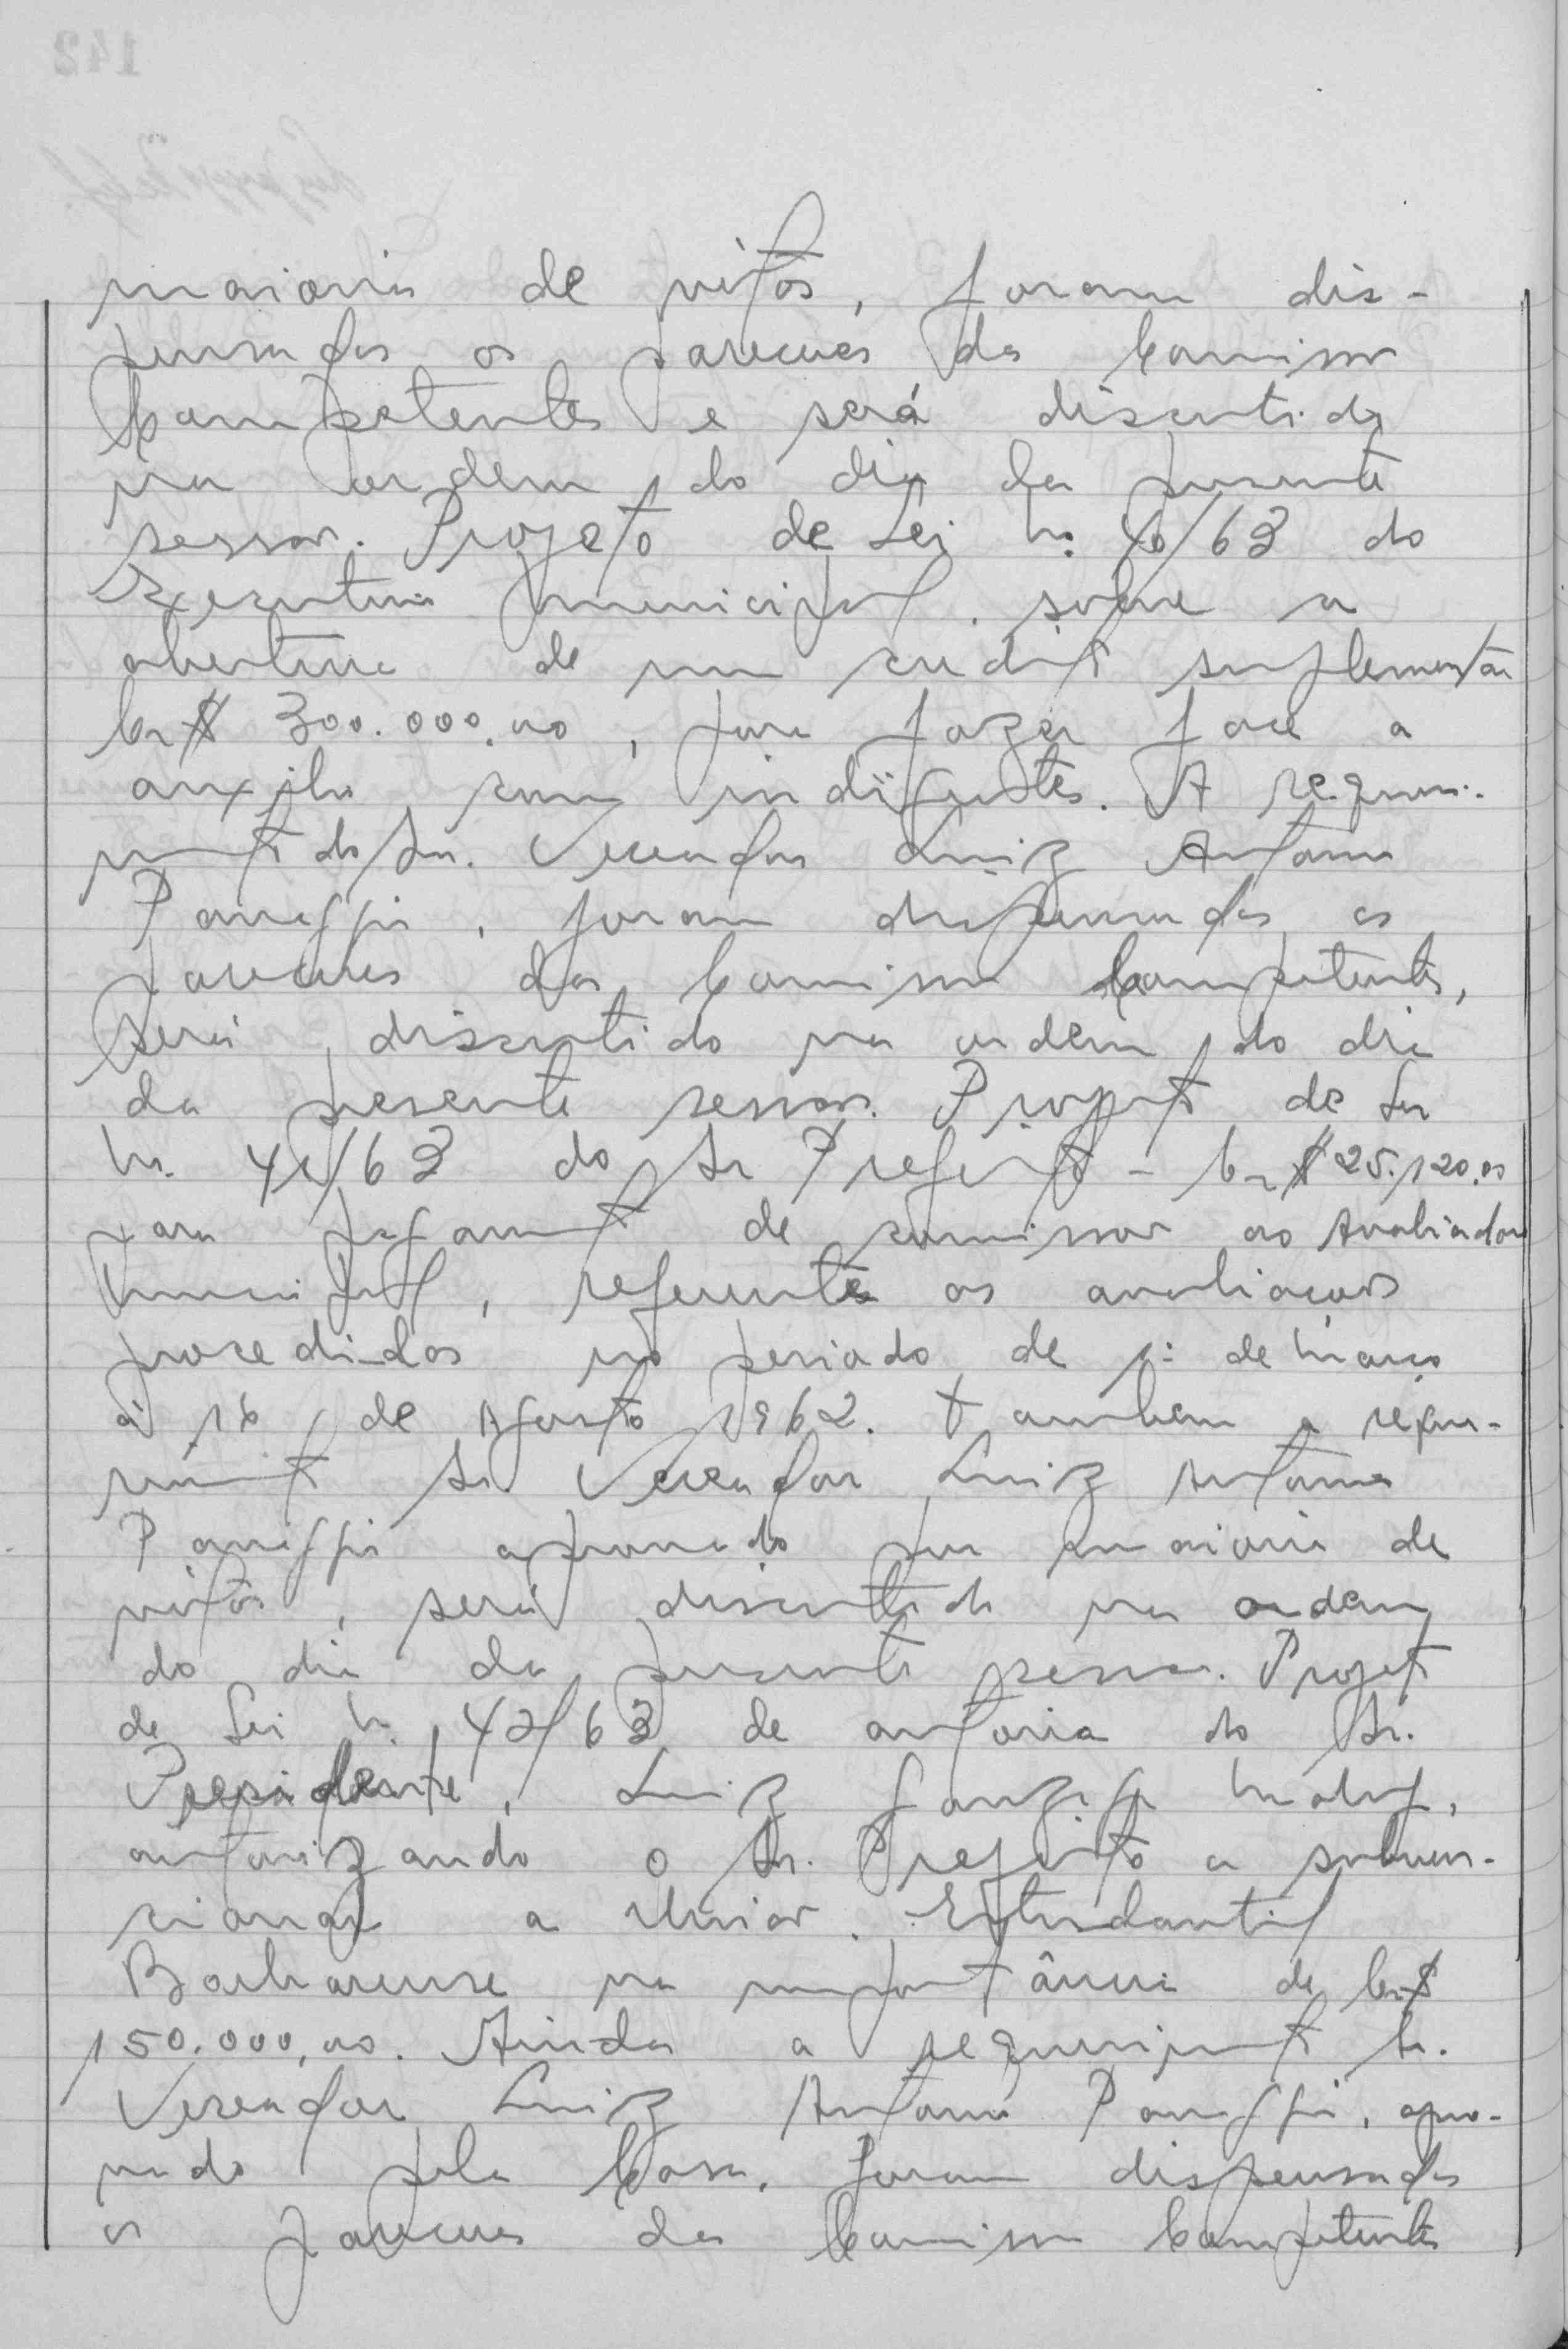 maioria de vótos, foram dis-
pensados os pareceres da Comissão
Competentes e será discutido
na ordem do dia da presente
sessão. Projeto de Lei n. 40/63 do
Executivo municipal, sobre a
abertura de um credito suplementar
Cr$ 300.000,00, para fazer face a
auxilio com indigentes. A requeri-
mento do Sr. Vereador Luiz Antonio
Panaggio, foram dispensados os
pareceres das Comissão Competentes,
será discutido na ordem do dia
da presente sessão. Projeto de Lei
n. 41/63 do Sr Prefeito - Cr$ 25.120,00
para pagamento de comissão ao Avaliador
municipal, referente as avaliações
procedidas no periodo de 1º de março
à 16 de Agosto 1962. Tambem a reque-
rimento Sr Vereador Luiz Antonio
aprovado por maioria de
vótos, será discutido na ordem
do dia da presente sessão. Projeto
de Lei n. 42/63 de autoria do Sr.
Presidente, Luiz
autorizando o Sr. Prefeito a subven-
cionar a União Estudantil
Barbarense na importância de Cr$
150.000,00. Ainda a requerimento Sr.
Vereador Luiz Antonio apro-
vado pela Casa, foram dispensados
os pareceres da Comissão Competentes
142